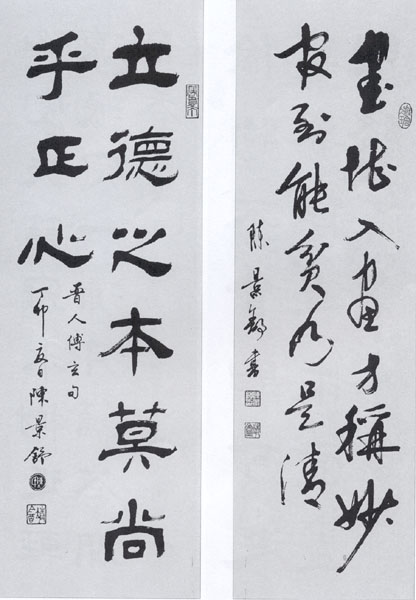 書堪入畫方稱妙
官到能貧乃是清
陳景舒書
立德之本莫尚
乎正心
晋人傅玄句
丁卯夏日陳景舒